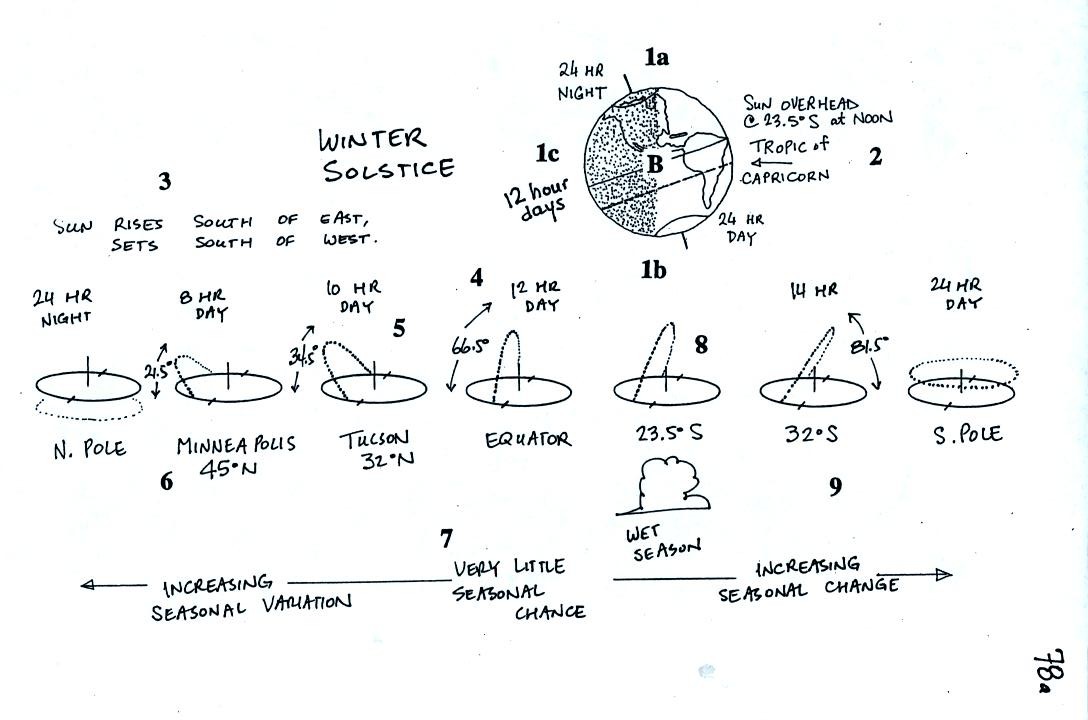 1a
24 HR
NIGHT
WINTER
SOLSTICE
1c
12 hour
days
B
SUN OVERHEAD
@ 23.5°S at NOON
TROPIC of
CAPRICORN
2
24 HR
DAY
1b
3
SUN RISES SOUTH OF EAST,
SETS SOUTH OF WEST.
24 HR
NIGHT
8 HR
DAY
10 HR
DAY
4
12 HR
DAY
14 HR
24 HR
DAY
21.5°
34.5°
5
66.5°
8
81.5°
N. POLE
MINNEAPOLIS
45°N
TUCSON
32°N
EQUATOR
23.5°S
32°S
S. POLE
6
9
WET
SEASON
7
INCREASING
SEASONAL VARIATION
VERY LITTLE
SEASONAL
CHANCE
INCREASING
SEASONAL CHANGE
78a